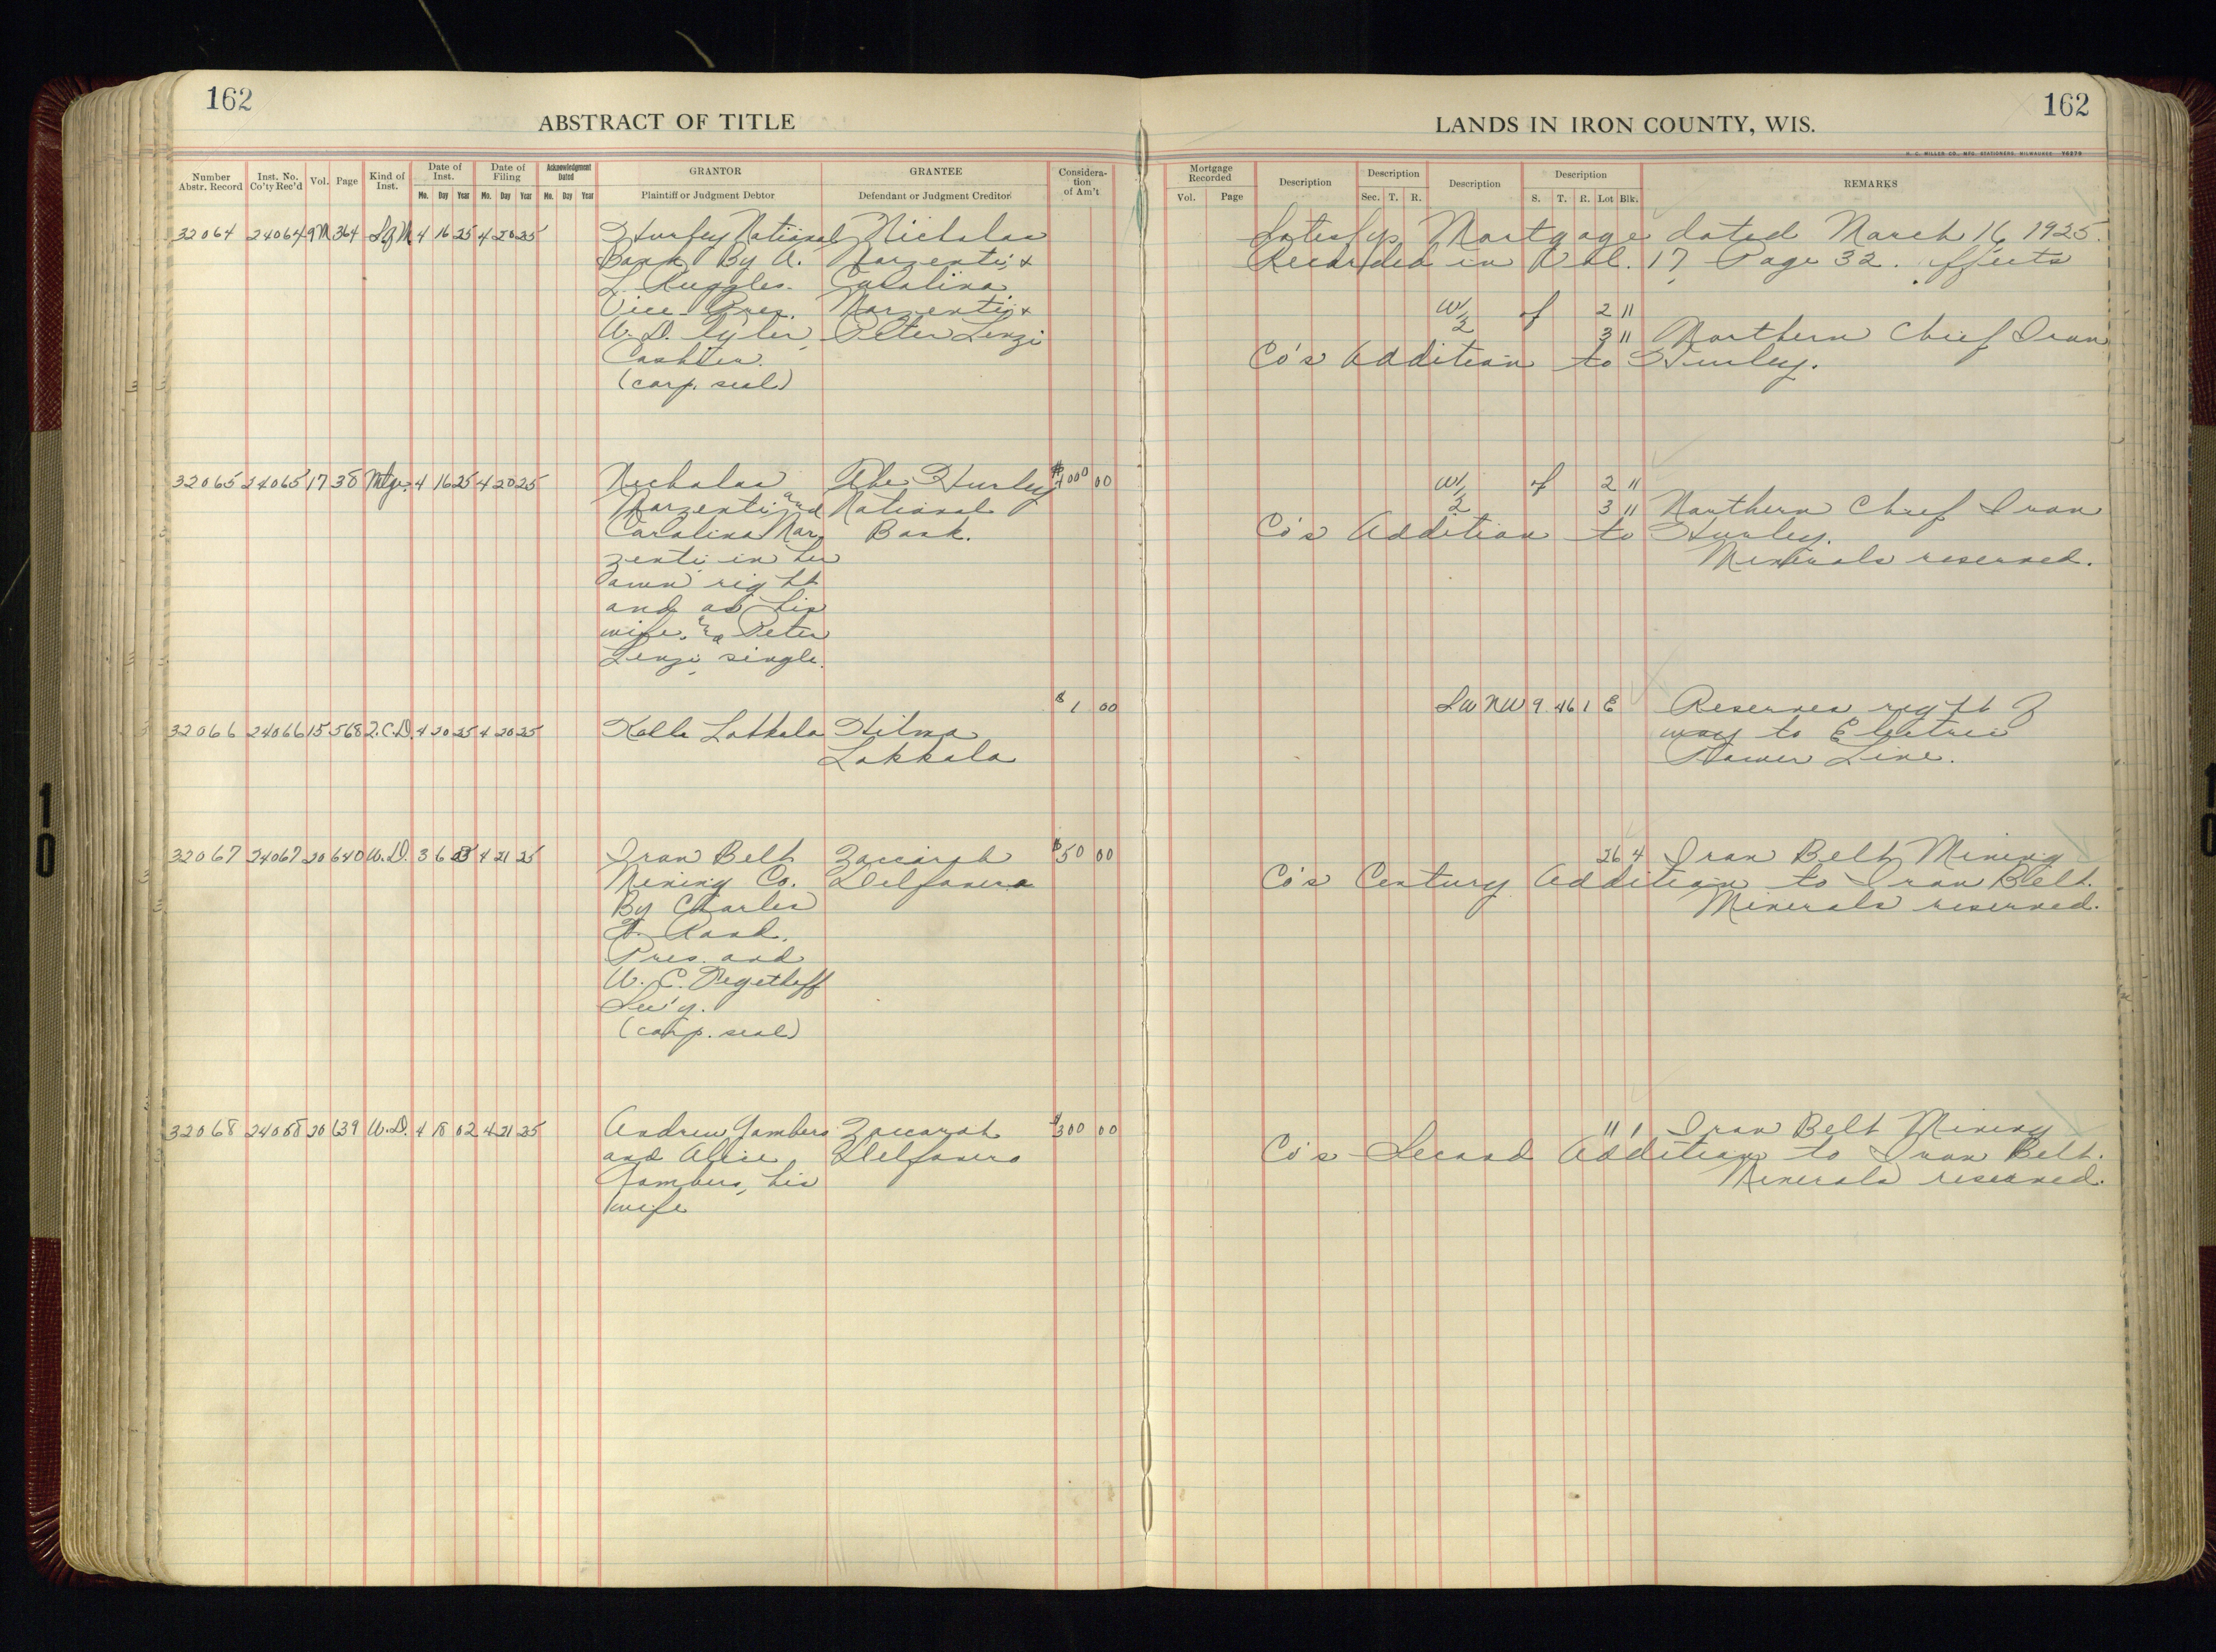 162
ABSTRACT OF TITLE
Number Abstr. Record
Inst. No. Co'ty Rec'd
Vol.
Page
Kind of Inst.
Date of Inst.
Mo. Day Year
Date of Filing
Mo. Day Year
Acknowledgment Dated
Mo. Day Year
GRANTOR
Plaintiff or Judgment Debtor
GRANTEE
Defendant or Judgment Creditor
Consideration of Am't
32064 24064 9M 364 S of M 4 16 25 4 20 25 Hurley National Nicholas
Bank By A. Narzenti, &
L. Ruggles. Carolina
Vice Pres. Narzenti, &
W. D. Tyler, Peter Lenzi
Cashier.
(corp. seal)
32065 24065 17 38 Mtge. 4 16 25 4 20 25 Nicholas The Hurley $ 00
Narzenti and National
Carolina Nar Bank.
zenti in her
own right
and as his
wife, Peter
Lenzi single.
$1 00
32066 24066 15 568 Q.C.D. 4 20 25 4 20 25 Kalle Lakkala Hilma
Lakkala
32067 24067 20 640 W.D. 3 6 4 21 25 Iron Belt Zaccarah $50 00
Mining Co. Delfavero
By Charles
F. Rand.
Pres. and
W. C. Degethoff
Sec'y.
(corp. seal)
32068 24068 20 639 W.D. 4 18 02 4 21 25 Andrew Jambers Zaccarah $300 00
and Alice Delfavero
Jambers, his
wife
LANDS IN IRON COUNTY, WIS.
162
H. C. MILLER CO., MFG. STATIONERS, MILWAUKEE 76276
Mortgage Recorded
Vol. Page
Description
Description
Sec. T. R.
Description
Description
S. T. R. Lot Blk.
REMARKS
Satisfys Mortgage dated March 16 1925.
Recorded in Vol. 17 Page 32. Affects
W 1/2 of 2 11
3 11 Northern Chief Iron
Co's Addition to Hurley.
W 1/2 of 2 11
3 11 Northern Chief Iron
Co's Addition to Hurley.
Minerals reserved.
SW NW 9 46 1 E Reserves right of
way to Electric
Power Line.
26 4 Iron Belt Mining
Co's Century Addition to Iron Belt.
Minerals reserved.
11 1 Iron Belt Mining
Co's Second Addition to Iron Belt.
Minerals reserved.
10